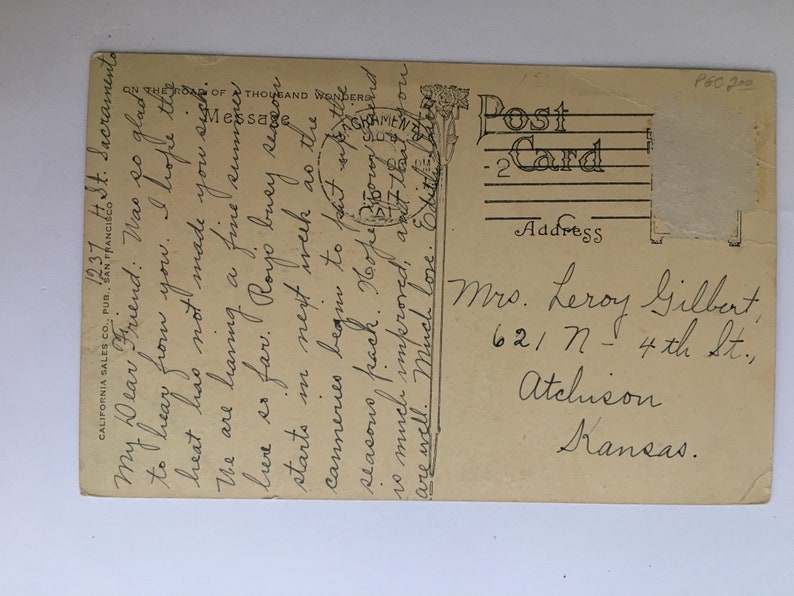 1237 4 St. Sacramento
My Dear Friend: Was so glad
to hear from you. I hope the
heat has not made you sick.
We are having a fine summer
here so far. Roys busy season
starts in next week as the
canneries begin to put up the
seasons pack. Hope your
is much improved, and that you
are well. Much love. Edith
ON THE ROAD OF A THOUSAND WONDERS
Message
CALIFORNIA SALES CO., PUB., SAN FRANCISCO
SACRAMENTO
1917
Post
Card
2
Address
PGC 200
Mrs. Leroy Gilbert,
621 N - 4th St.,
Atchison
Kansas.